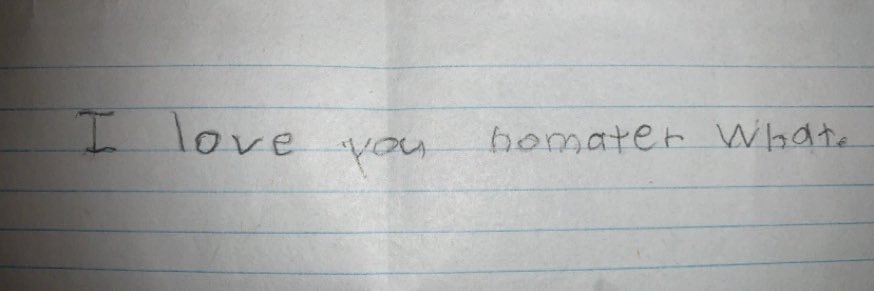 I love you nomater What.